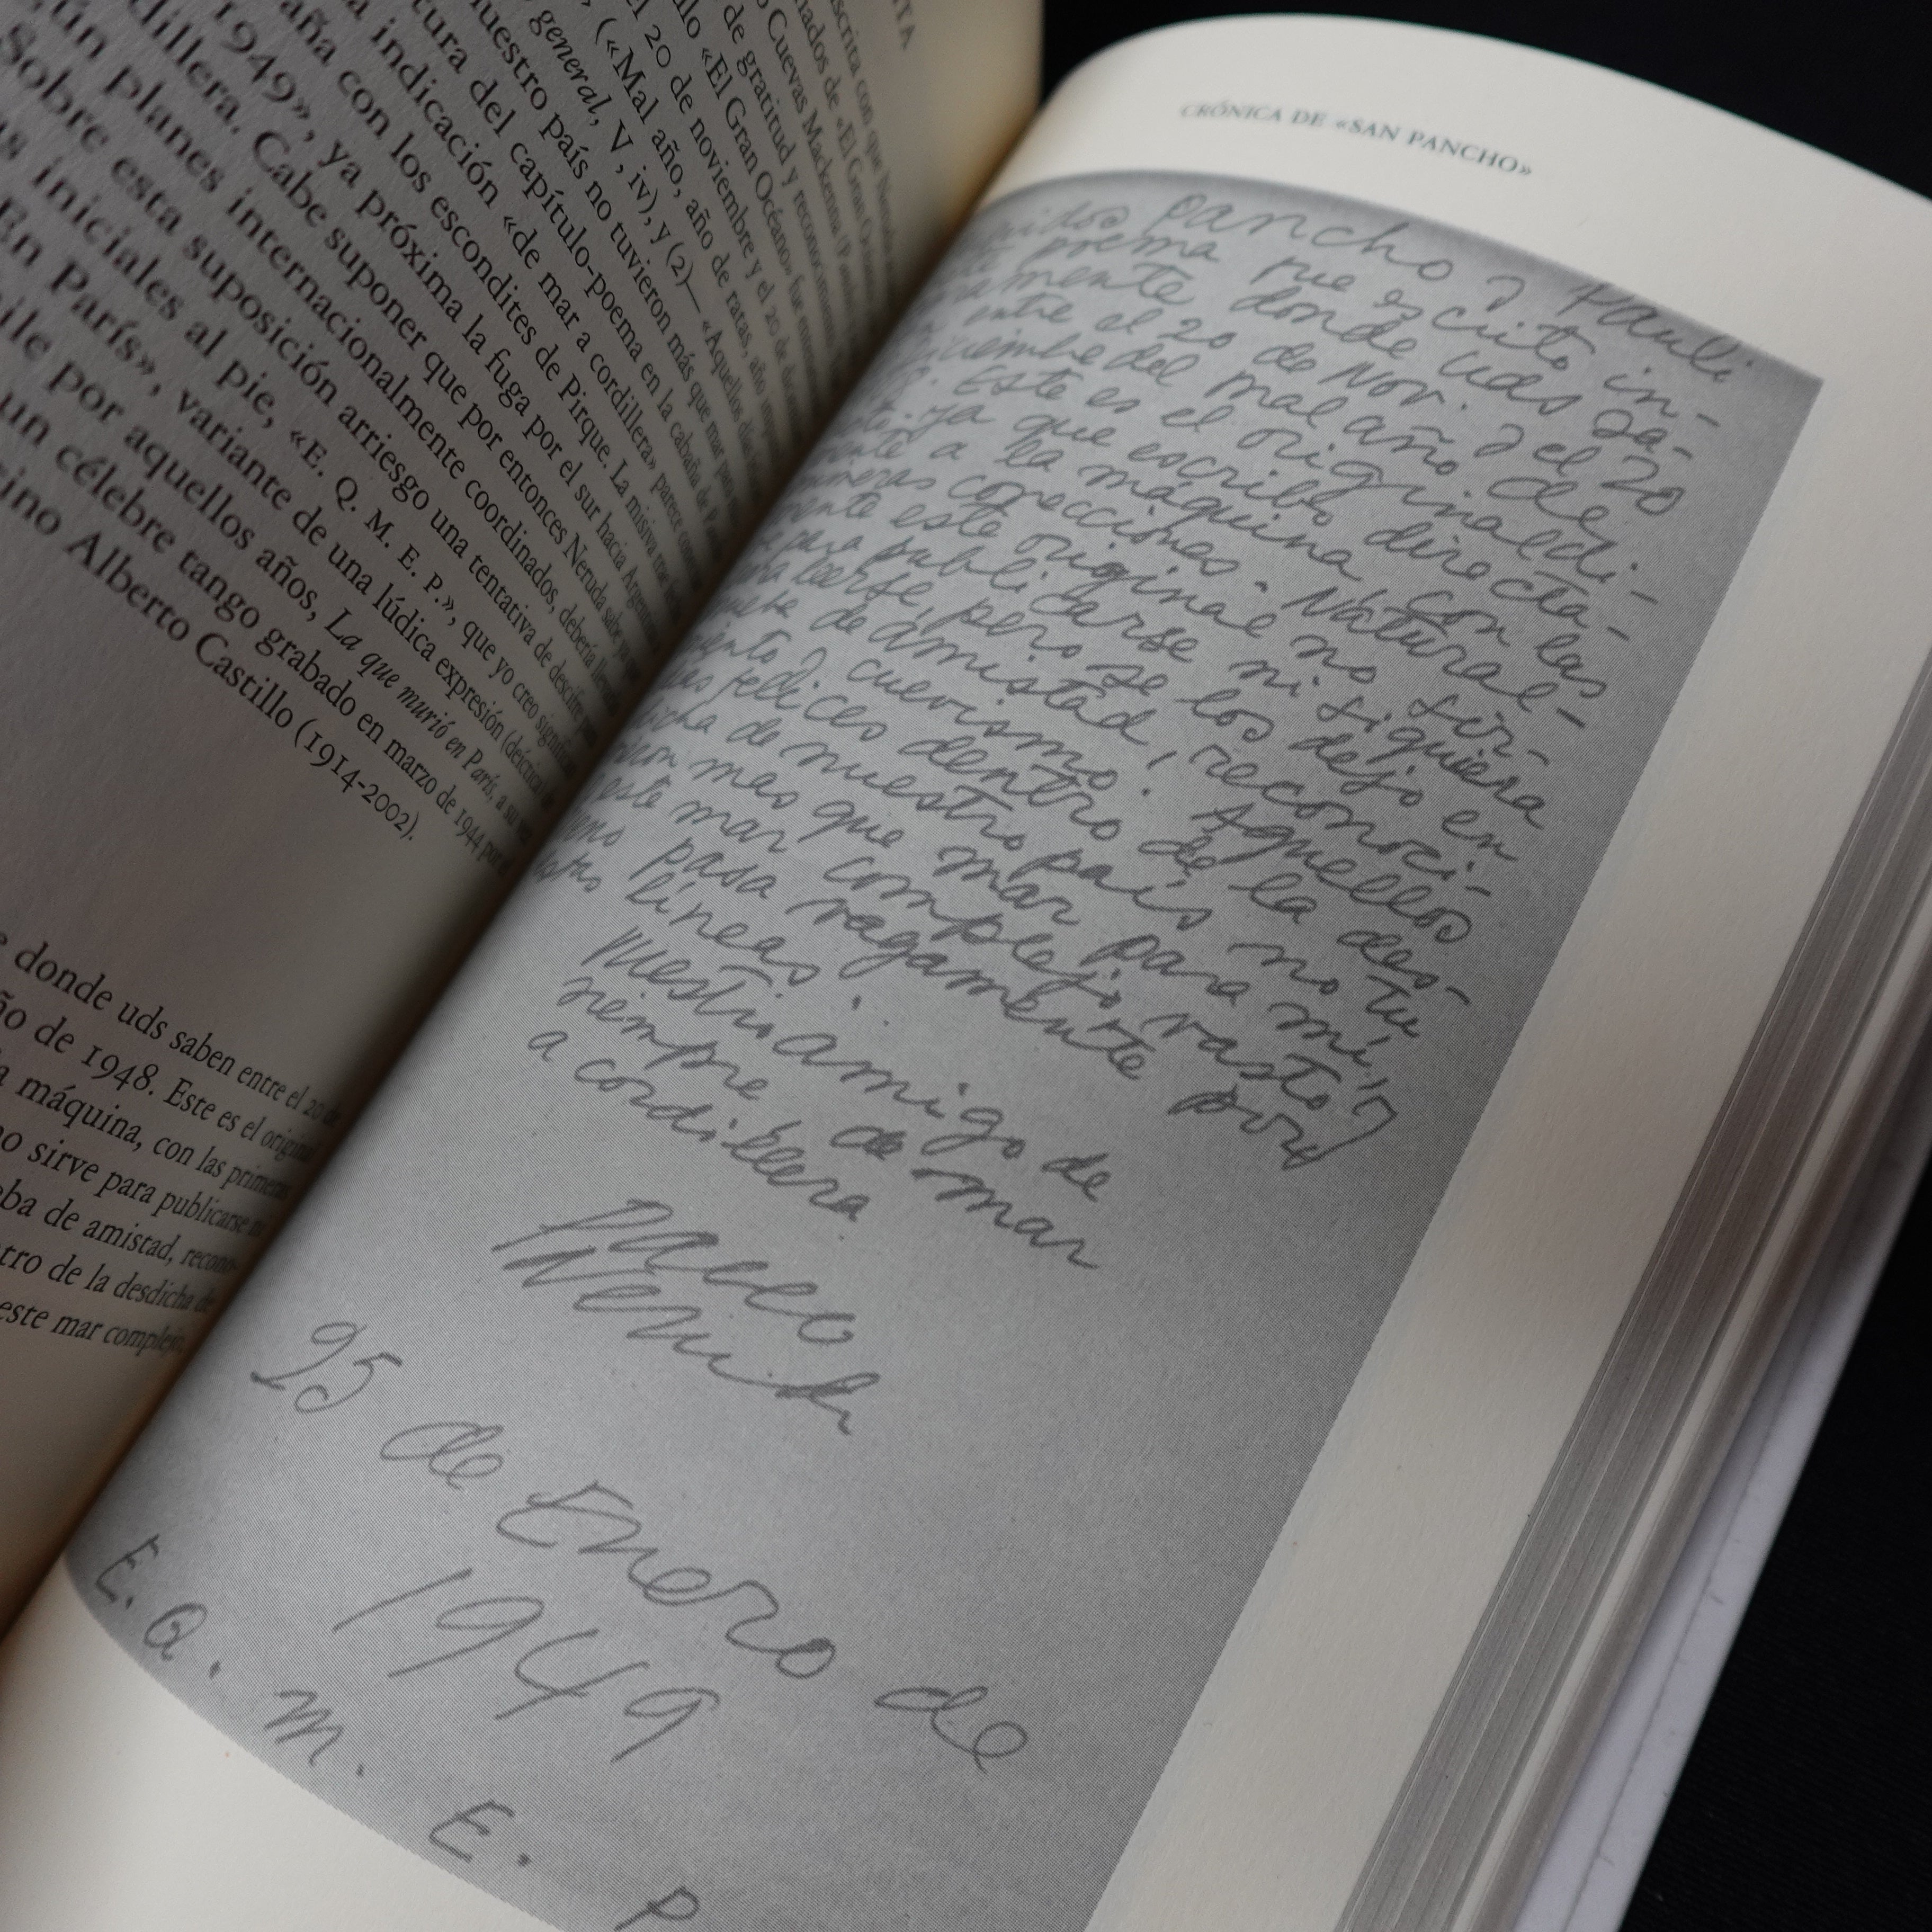 ITA
scrita con que
Cuevas Mackenna
nados de «El Gran
de gratitud y reconocimiento
«El Gran Océano» fue
l 20 de noviembre y el 20 de
(«Mal año, año de ratas, año
general, V, iv), y (2)— «Aquellos
nuestro país no tuvieron más que mar para
tura del capítulo-poema en la cabaña de
a indicación «de mar a cordillera» parece
aña con los escondites de Pirque. La misiva
1949», ya próxima la fuga por el sur hacia Argentina
dillera. Cabe suponer que por entonces Neruda sabe ya
ún planes internacionalmente coordinados, debería
Sobre esta suposición arriesgo una tentativa de
s iniciales al pie, «E. Q. M. E. P.», que yo creo
En París», variante de una lúdica expresión
ile por aquellos años, La que murió en París, a su
un célebre tango grabado en marzo de 1944 por
ino Alberto Castillo (1914-2002).
donde uds saben entre el 20 de
ño de 1948. Este es el original
a máquina, con las primeras
no sirve para publicarse ni
eba de amistad, recono-
tro de la desdicha de
este mar complejo,
CRÓNICA DE «SAN PANCHO»
Pancho y Pauli
poema que escribí in-
amente donde Uds sa-
entre el 20 de Nov. y el 20
iciembre del mal año de
Este es el original di-
ya que escribo directa-
a la máquina con las
imeras correcciones. Natural-
mente este original no sir-
para publicarse ni siquiera
para leerse, pero se los dejo en
de amistad, reconoci-
iento y cuevismo. Aquellos
ias felices dentro de la des-
icha de nuestro país no tu
ieron mas que mar para mí,
este mar complejo, vasto y
pasa vagamente por
estas líneas.
Vuestro amigo de
siempre de mar
a cordillera
Pablo
Neruda
25 de Enero de
1949
E. Q. M. E. P